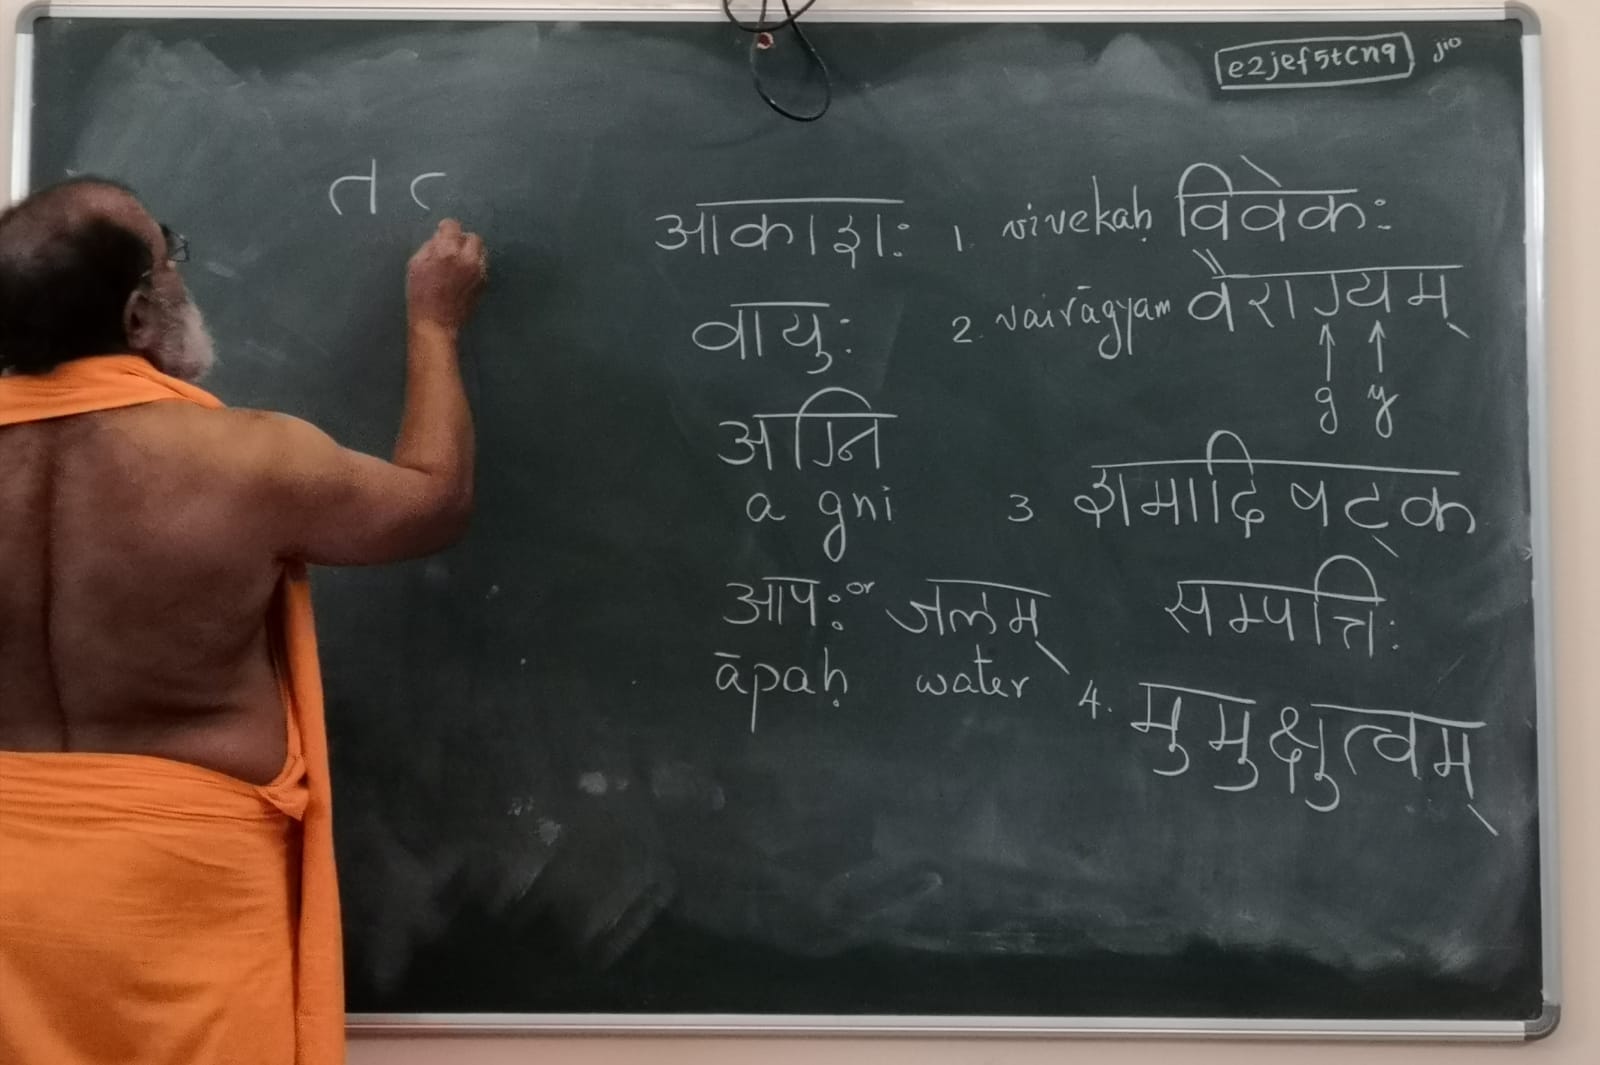 e2jef5tcn9 jio
त
आकाशः
वायुः
अग्नि
a gni
आपः or जलम्
āpaḥ water
1. vivekaḥ विवेकः
2. vairāgyam वैराग्यम्
g y
3 शमादि षट्क
सम्पत्तिः
4. मुमुक्षुत्वम्